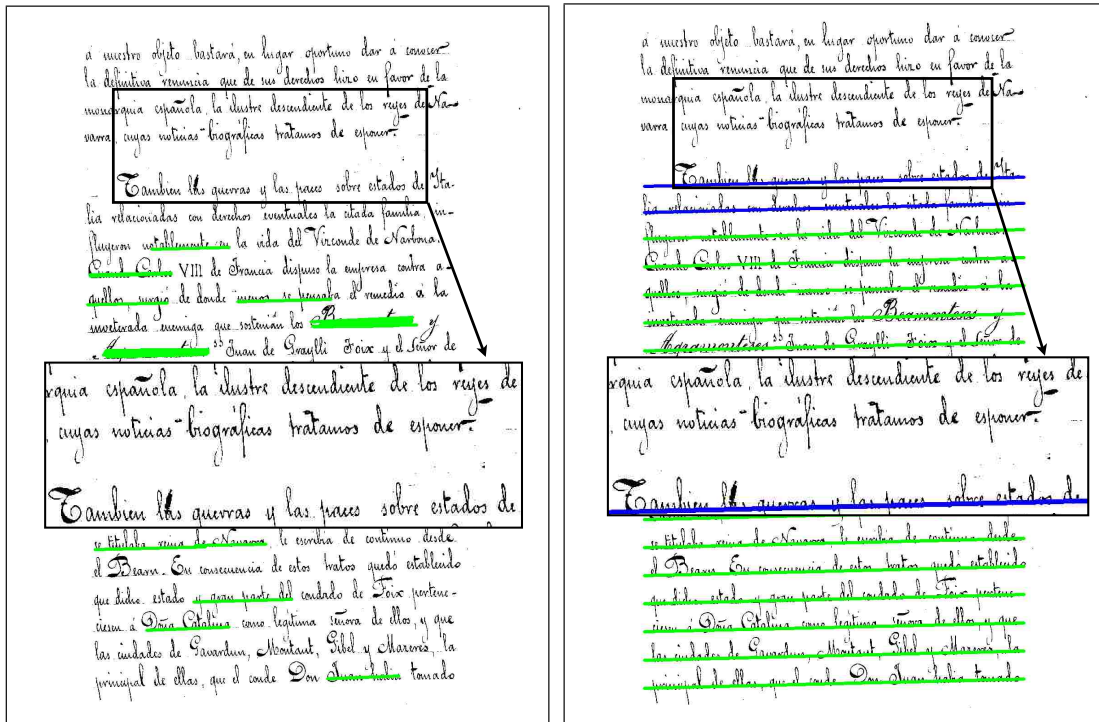 á nuestro objeto bastará, en lugar oportuno dar á conocer
la definitiva renuncia que de sus derechos hizo en favor de la
monarquia española, la ilustre descendiente de los reyes de Na-
varra, cuyas noticias biográficas tratamos de esponer.
Tambien las guerras y las paces sobre estados de Ita-
lia relacionadas con derechos eventuales la citada familia, in-
fluyeron notablemente en la vida del Vizconde de Narbona.
Cuando Carlos VIII de Francia dispuso la empresa contra a-
quellos, surgió de donde menos se pensaba el remedio á la
inveterada enemiga que sostenián los y
Juan de Graylli Foix y el Señor de
rquia española, la ilustre descendiente de los reyes de
cuyas noticias biográficas tratamos de esponer.
Tambien las guerras y las paces sobre estados de
se titulaba reina de Navarra, le escribia de continuo desde
el Bearn. En consecuencia de estos tratos quedó establecido
que dicho estado y gran parte del condado de Foix pertene-
ciesen á Doña Catalina como legitima señora de ellos, y que
las ciudades de Gavardun, Montaut, Gibel y Mazeres, la
principal de ellas, que el conde Don Juan habia tomado
á nuestro objeto bastará, en lugar oportuno dar á conocer
la definitiva renuncia que de sus derechos hizo en favor de la
monarquia española, la ilustre descendiente de los reyes de Na-
varra, cuyas noticias biográficas tratamos de esponer.
Tambien las guerras y las paces sobre estados de Ita-
lia relacionadas con derechos eventuales la citada familia, in-
fluyeron notablemente en la vida del Vizconde de Narbona.
Cuando Carlos VIII de Francia dispuso la empresa contra a-
quellos, surgió de donde menos se pensaba el remedio á la
inveterada enemiga que sostenián los Beamonteses y
Agramonteses" Juan de Graylli Foix y el Señor de
rquia española, la ilustre descendiente de los reyes de
cuyas noticias biográficas tratamos de esponer.
Tambien las guerras y las paces sobre estados de
se titulaba reina de Navarra, le escribia de continuo desde
el Bearn. En consecuencia de estos tratos quedó establecido
que dicho estado y gran parte del condado de Foix pertene-
ciesen á Doña Catalina como legitima señora de ellos, y que
las ciudades de Gavardun, Montaut, Gibel y Mazeres, la
principal de ellas, que el conde Don Juan habia tomado